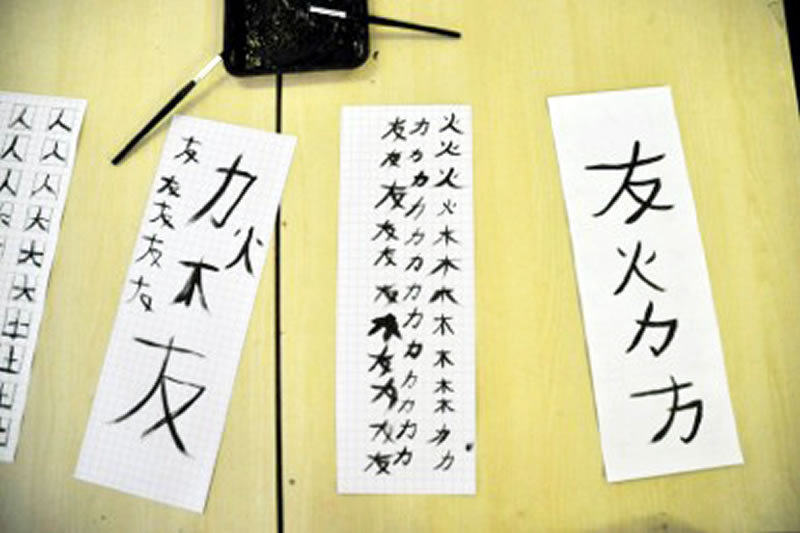 人人
人人
人人
大
大
大
土
友友友友友
力火木友
火火火火木木木木木木木力力
力力力力力力力力力力力力力
友友友友友友友友友友
友火力方